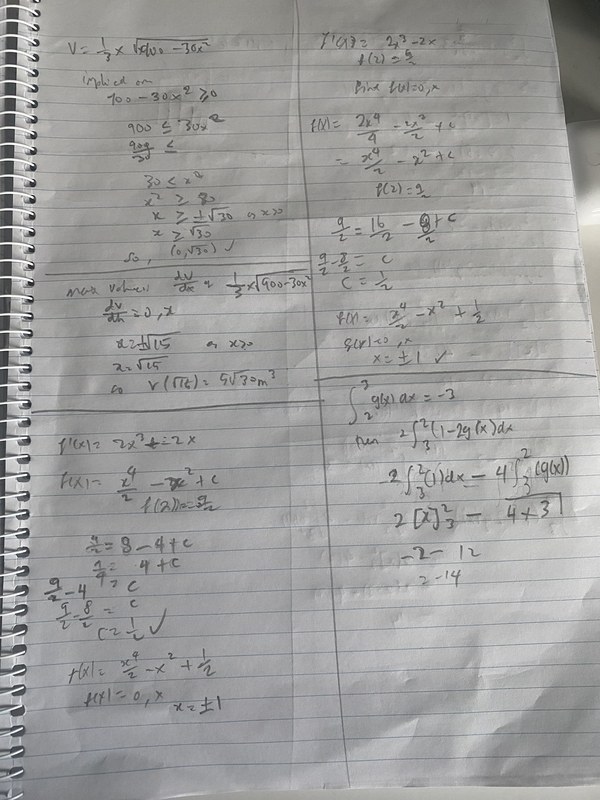 V = 1/3 x √(900 - 30x²)
900 - 30x² ≥ 0
900 ≤ 30x²
900/30 ≤
30 ≤ x²
x² ≥ 30
x ≥ ±√30 as x>0
x ≥ √30
so, (0,√30) ✓
max volume dV/dx = 1/3 x√(900-30x²)
dV/dx = 0, x
x = ±√15 as x>0
x = √15
so V(√15) = 5√30 m³
f'(x) = 2x³ - 2x
f(x) = x⁴/2 - x² + c
f(2) = 9/2
9/2 = 8 - 4 + c
9/2 = 4 + c
9/2 - 4 = c
9/2 - 8/2 = c
c = 1/2 ✓
f(x) = x⁴/2 - x² + 1/2
f(x) = 0, x
x = ±1
f'(x) = 2x³ - 2x
f(2) = 9/2
find f(x)=0, x
f(x) = 2x⁴/4 - 2x²/2 + c
= x⁴/2 - x² + c
f(2) = 9/2
9/2 = 16/2 - 8/2 + c
9/2 - 8/2 = c
c = 1/2
f(x) = x⁴/2 - x² + 1/2
x = ±1 ✓
∫₂³ g(x) dx = -3
then 2∫₃²(1 - 2g(x) dx
2∫₃²(1) dx - 4∫₃²(g(x))
2[x]₃² - 4 × 3
-2 - 12
= -14